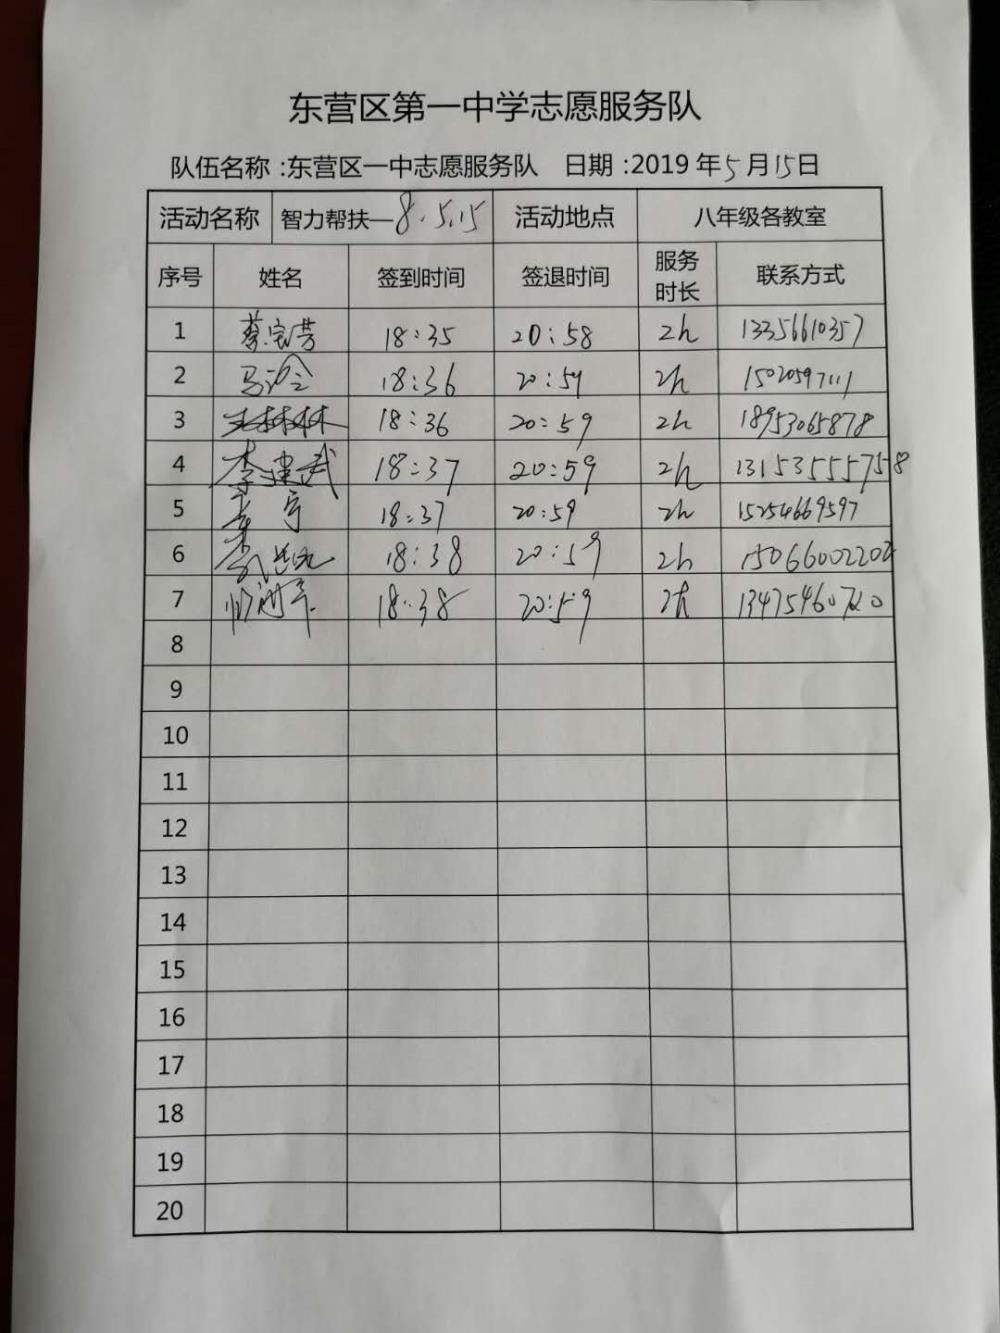 东营区第一中学志愿服务队
队伍名称:东营区一中志愿服务队 日期:2019年5月15日
活动名称 智力帮扶—8.5.15 活动地点 八年级各教室
序号 姓名 签到时间 签退时间 服务时长 联系方式
1 蔡宝芳 18:35 20:58 2h 13356610357
2 18:36 20:59 2h 15020597111
3 王林林 18:36 20:59 2h 18953065878
4 李建武 18:37 20:59 2h 13153555758
5 18:37 20:59 2h 15254669597
6 18:38 20:59 2h 15066002202
7 18:38 20:59 2h
8
9
10
11
12
13
14
15
16
17
18
19
20